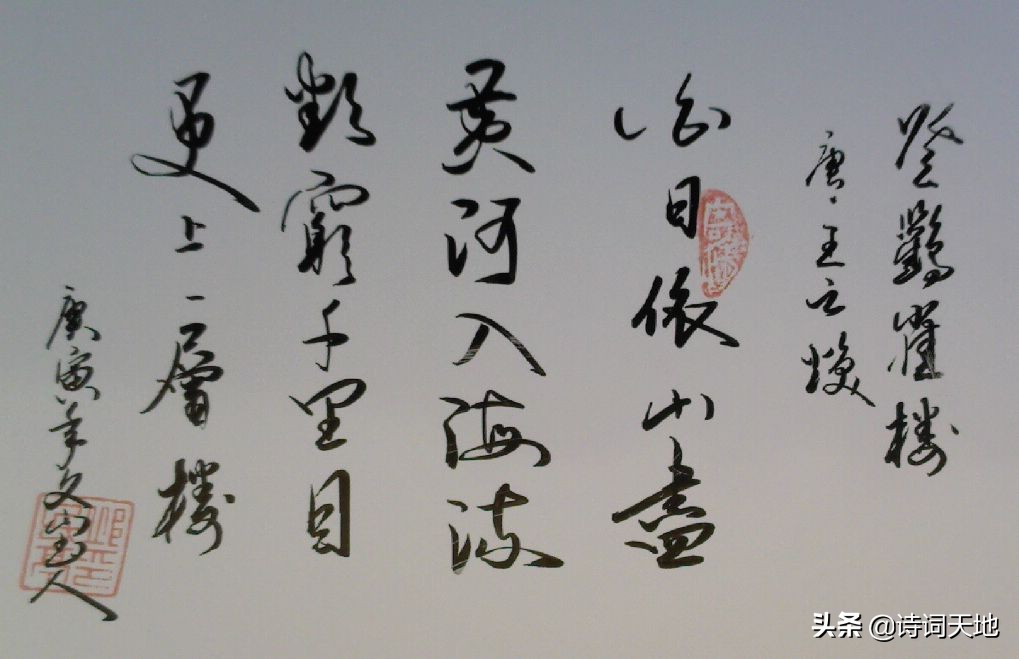 登鸛雀樓
唐·王之煥
白日依山盡
黃河入海流
欲窮千里目
更上一層樓
庚寅年文山人
头条 @诗词天地